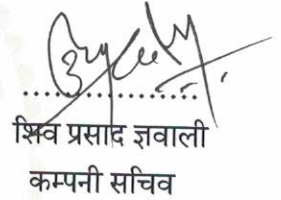 शिव प्रसाद ज्ञवाली
कम्पनी सचिव